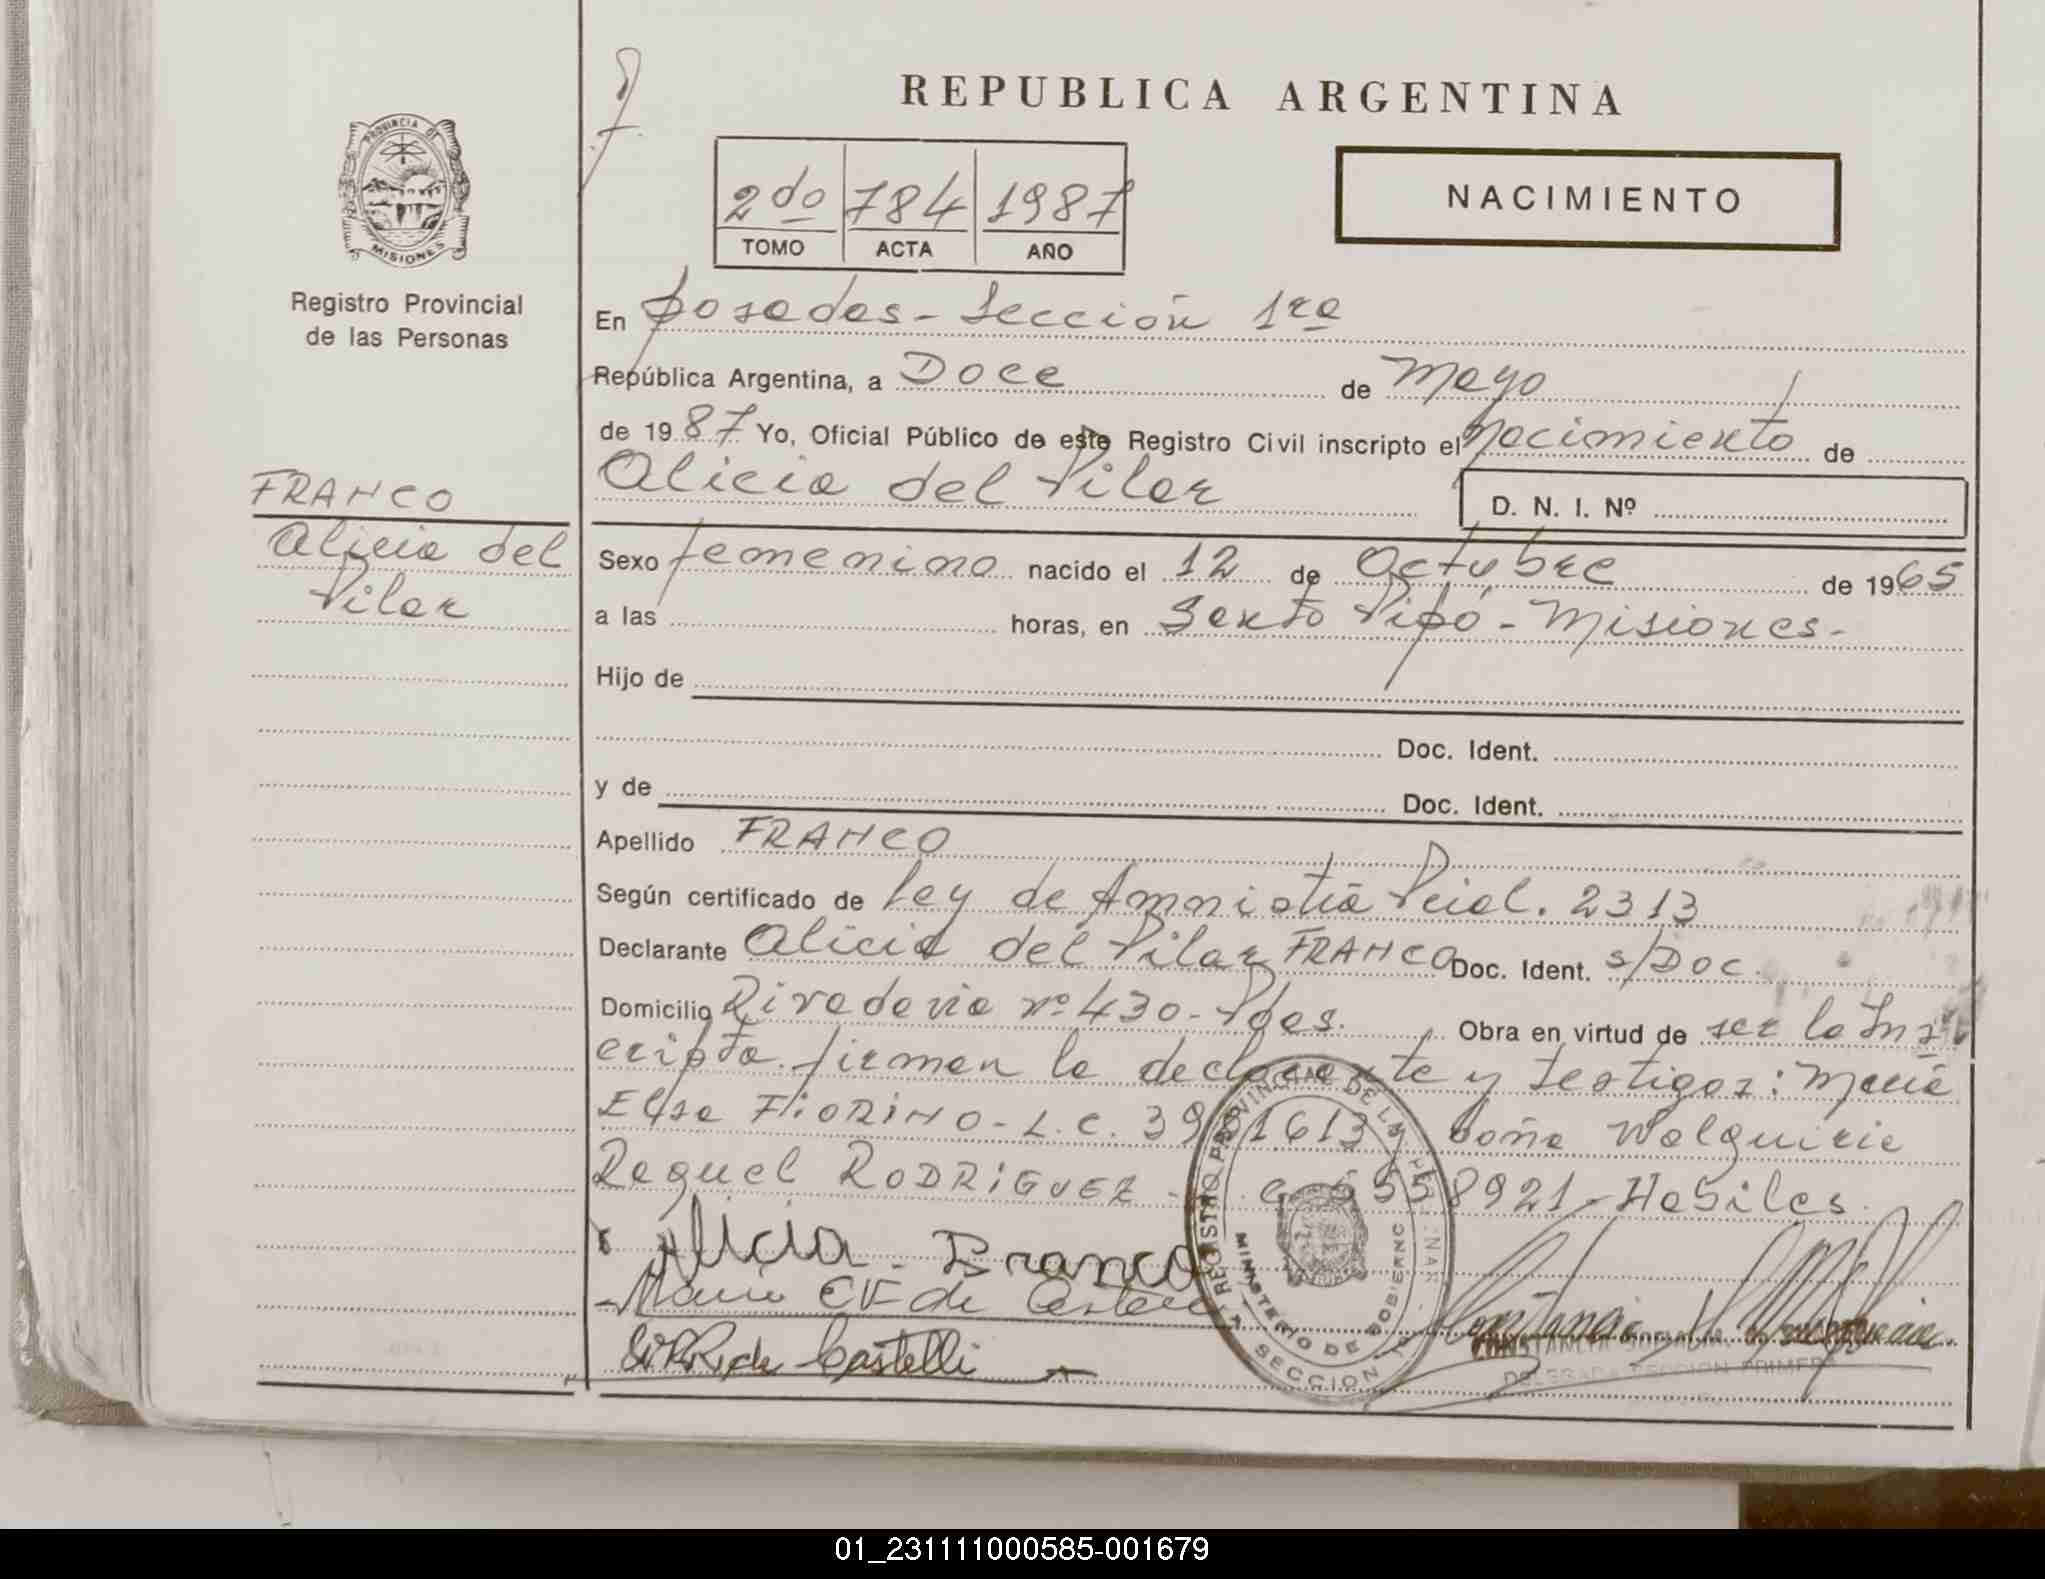 REPUBLICA ARGENTINA
PROVINCIA DE
MISIONES
Registro Provincial
de las Personas
2do 784 1987
TOMO ACTA AÑO
NACIMIENTO
En Posadas - Sección 1ra
República Argentina, a Doce de Mayo
de 1987 Yo, Oficial Público de este Registro Civil inscripto el Nacimiento de
Alicia del Pilar
D. N. I. Nº
FRANCO
Alicia del
Pilar
Sexo femenino nacido el 12 de Octubre de 1965
a las horas, en Santo Pipó - Misiones -
Hijo de
Doc. Ident.
y de Doc. Ident.
Apellido FRANCO
Según certificado de Ley de Amnistia Pcial. 2313
Declarante Alicia del Pilar FRANCO Doc. Ident. s/Doc.
Domicilio Rivadavia nº 430 - Pdas. Obra en virtud de ser la Ins
cripta. firman la declarante y testigos: María
Elsa FIORINO - L.C. 39 1613 doña Walquiria
Raquel RODRIGUEZ - 6558921 - Habiles.
Alicia - Franco
María E F de
de Castelli
REGISTRO PROVINCIAL DE LAS
MINISTERIO DE GOBIERNO
SECCION
CONSTANCIA
DELEGADA SECCION PRIMERA
01_231111000585-001679